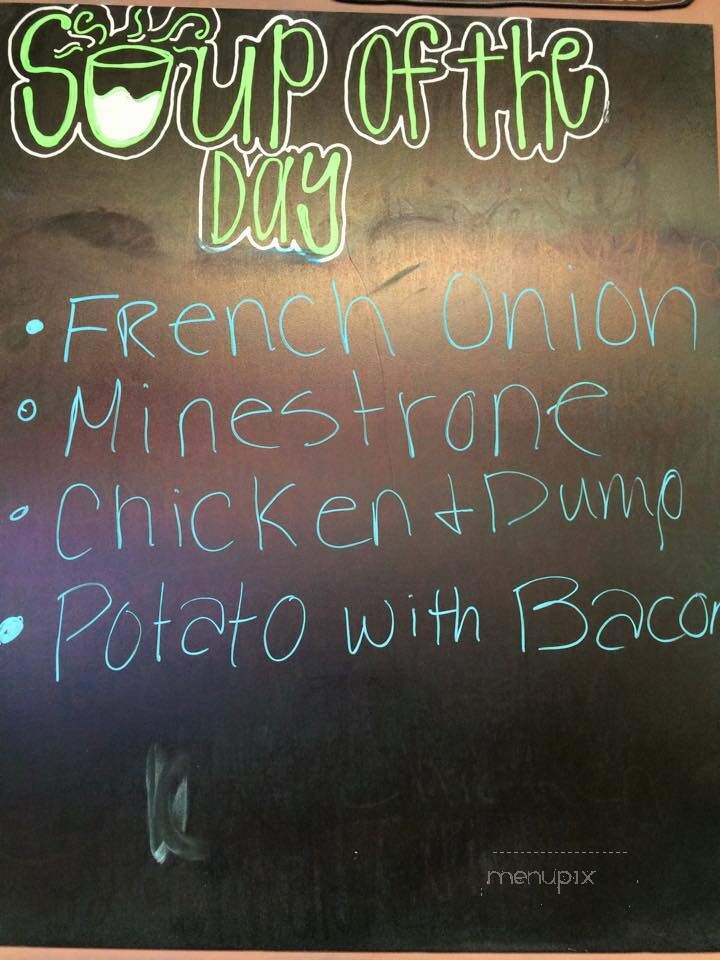 Soup of the
Day
• French Onion
• Minestrone
• Chicken & Dump
• Potato with Bacon
menupix